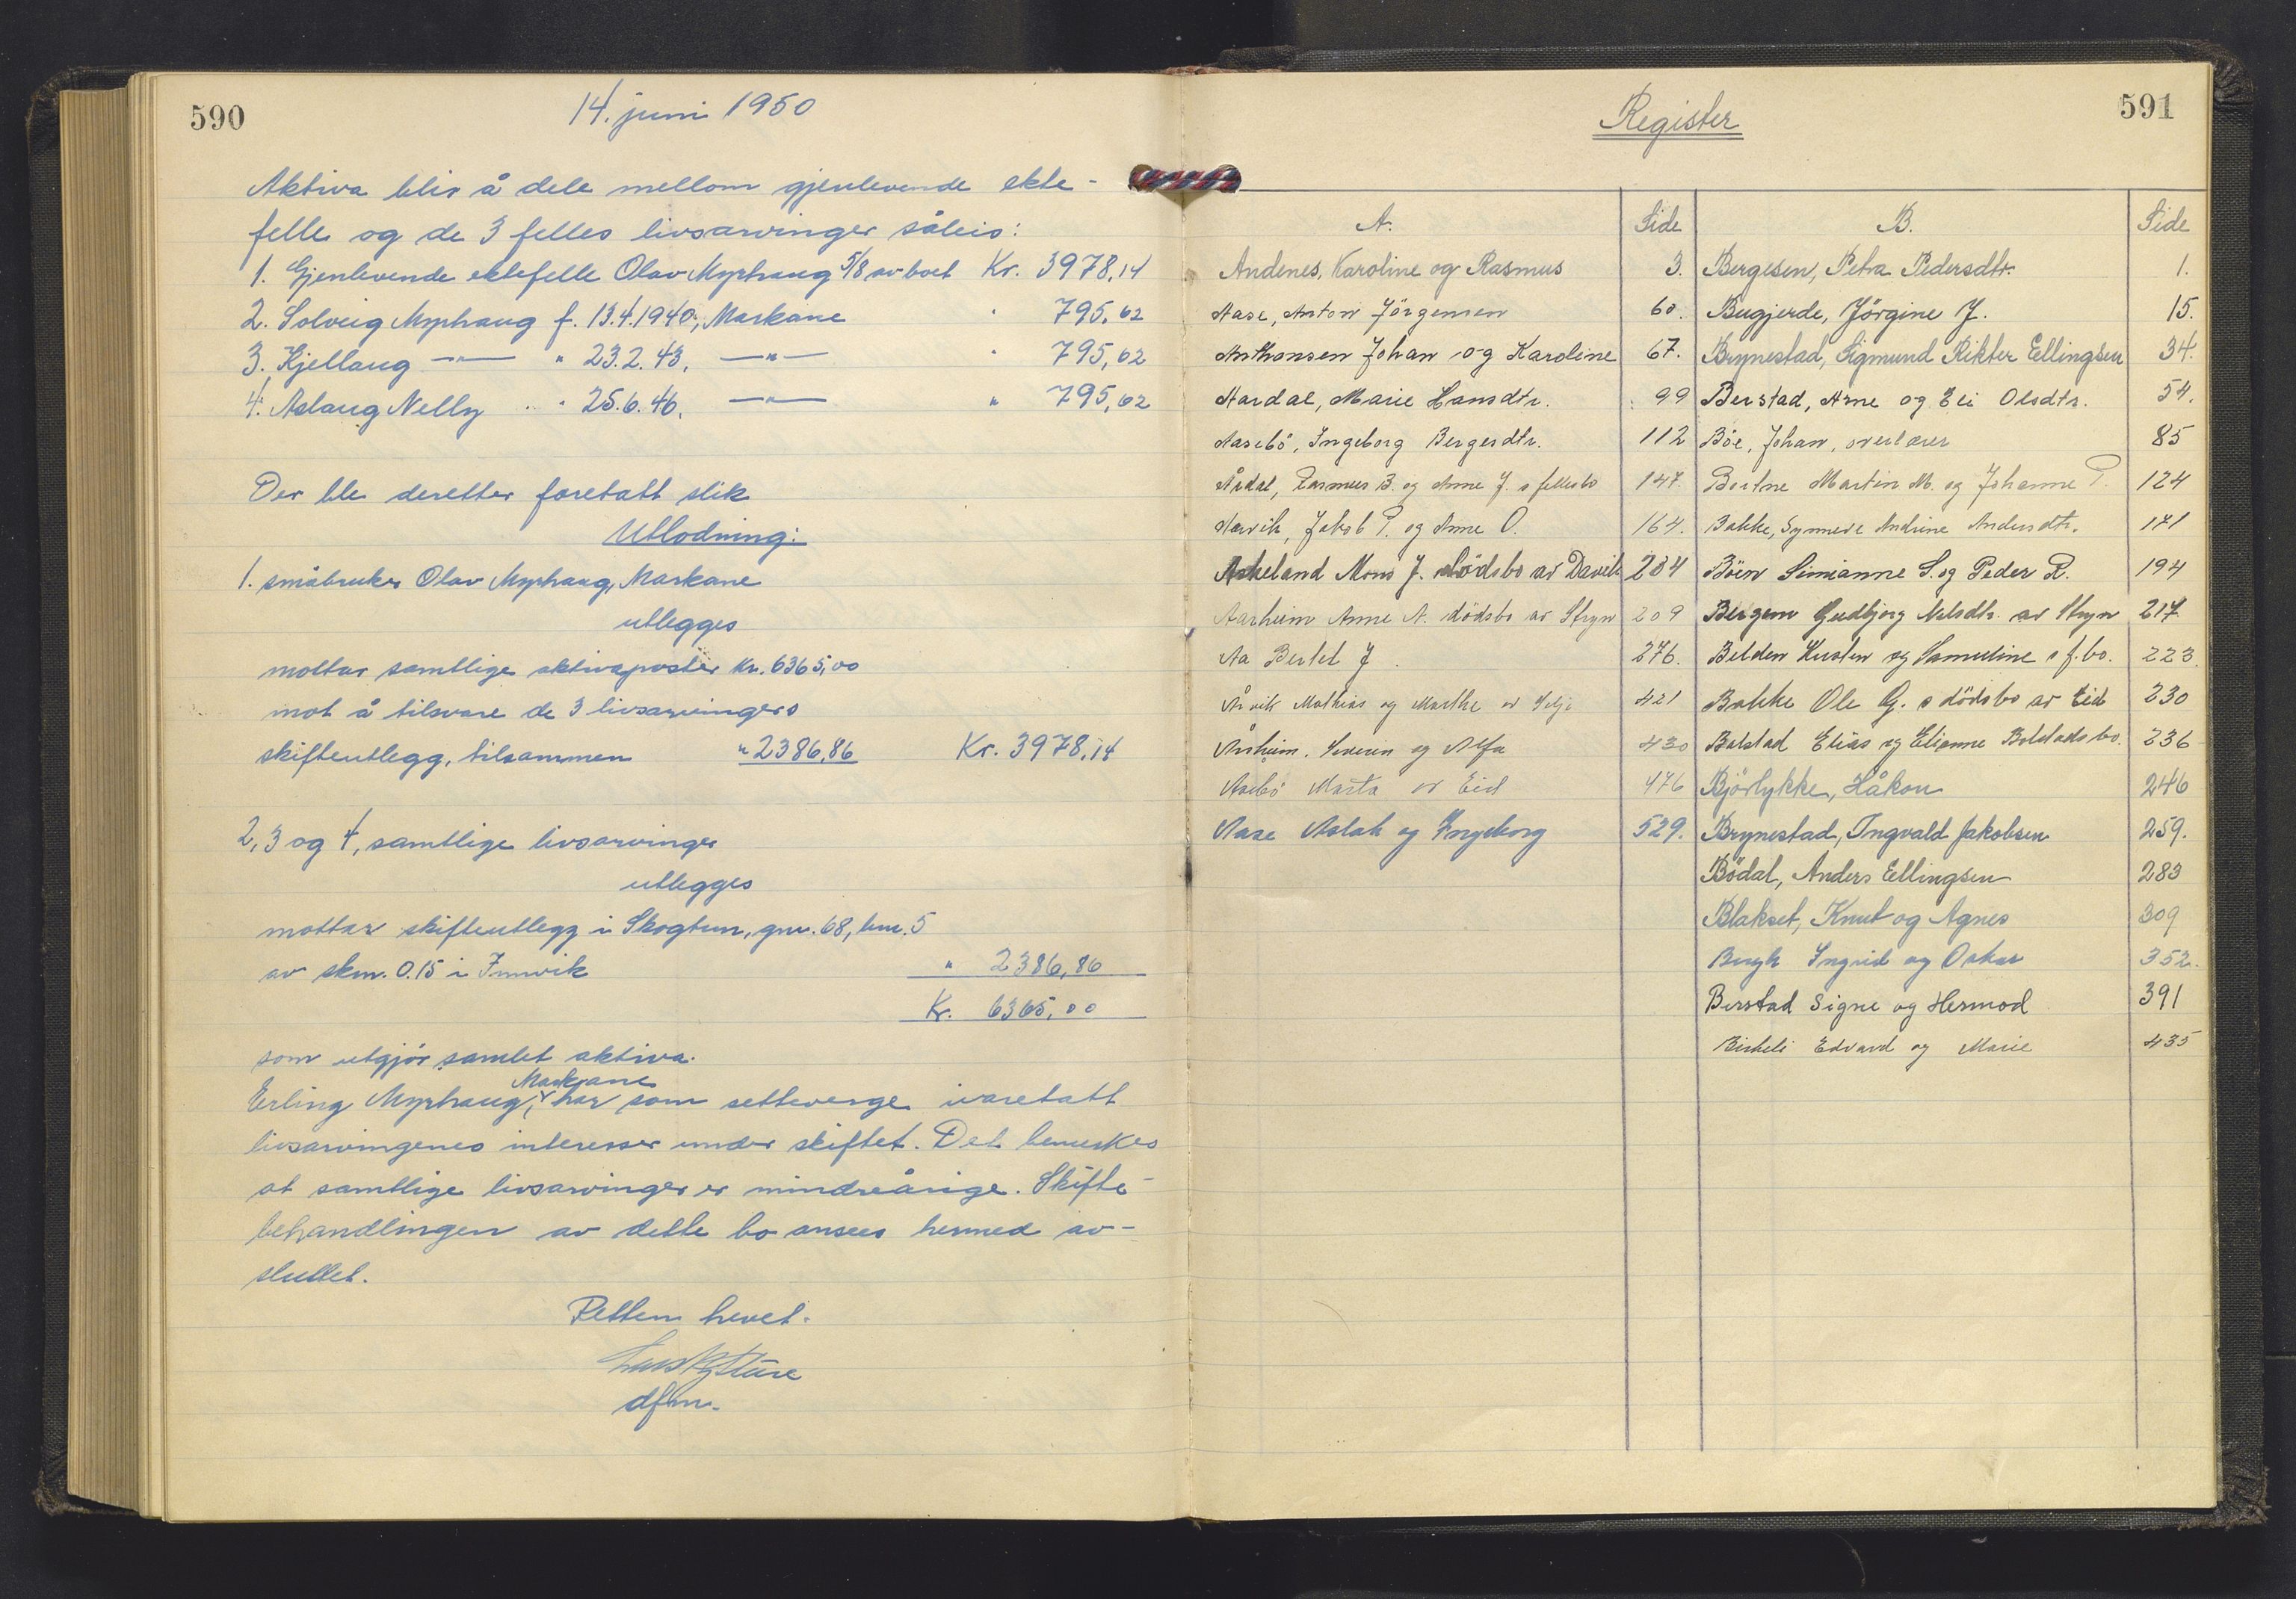 590
14. juni 1950
Aktiva blir å dele mellom gjenlevende ekte-
felle og de 3 felles livsarvinger såleis:
1. Gjenlevende ektefelle Olav Myrhaug 5/8 av boet Kr. 3978,14
2. Solveig Myrhaug f. 13.4.1940, Markane " 795,62
3. Kjellaug —"— " 23.2.43, —"— " 795,62
4. Aslaug Nelly " " 25.6.46, —"— " 795,62
Der ble deretter foretatt slik
Utlodning:
1. småbruker Olav Myrhaug, Markane
utlegges
mottar samtlige aktivaposter kr. 6365,00
mot å tilsvare de 3 livsarvingers
skifteutlegg, tilsammen " 2386,86 Kr. 3978,14
2, 3 og 4, samtlige livsarvinger
utlegges
mottar skifteutlegg i Skogtun, gnr. 68, bnr. 5
av skm. 0.15 i Innvik " 2386,86
Kr. 6365,00
som utgjör samlet aktiva.
Markane
Erling Myrhaug, har som setteverge ivaretatt
livsarvingenes interesser under skiftet. Det bemerkes
at samtlige livsarvinger er mindreårige. Skifte-
behandlingen av dette bo ansees hermed av-
sluttet.
Retten hevet.
dfm.
591
Register
A. Side B. Side
Andenes, Karoline og Rasmus 3. Bergesen, Petra Pedersdtr. 1.
Aase, Anton Jörgensen 60. Bugjerde, Jörgine J. 15.
Anthonsen Johan og Karoline 67. Brynestad, Sigmund Rikter Ellingsen 34.
Aardal, Marie Hansdtr. 99 Berstad, Arne og Eli Olsdtr. 54.
Aasebö, Ingeborg Bergesdtr. 112 Böe, Johan, overlærer 85
Årdal, Rasmus B. og Anne J. s fellesbo 147. Bortne Martin M. og Johanne P. 124
Aarvik, Jakob P. og Anne O. 164. Bakke, Synneve Andrine Andersdtr. 171
Askeland Mons J. dödsbo av Davik 204 Böen Simianne S. og Peder R. 194
Aarheim Anne A. dödsbo av Stryn 209 Bergem Gudbjörg Nilsdtr. av Stryn 217
Aa Bertel J. 276. Belden Kristen og Samueline s f.bo. 223.
Årvik Mathias og Marthe av Selje 421 Bakke Ole G. s dödsbo av Eid 230
Årsheim. Severin og Alfa 430 Bolstad Elias og Elianne Bolstads bo. 236
Aasebö Marta av Eid 476 Björlykke, Håkon 246
Aase Aslak og Ingeborg 529. Brynestad, Ingvald Jakobsen 259.
Bödal, Anders Ellingsen 283
Blakset, Knut og Agnes 309
Bugh Ingrid og Oskar 352.
Berstad Signe og Hermod 391
Birkeli Edvard og Marie 435